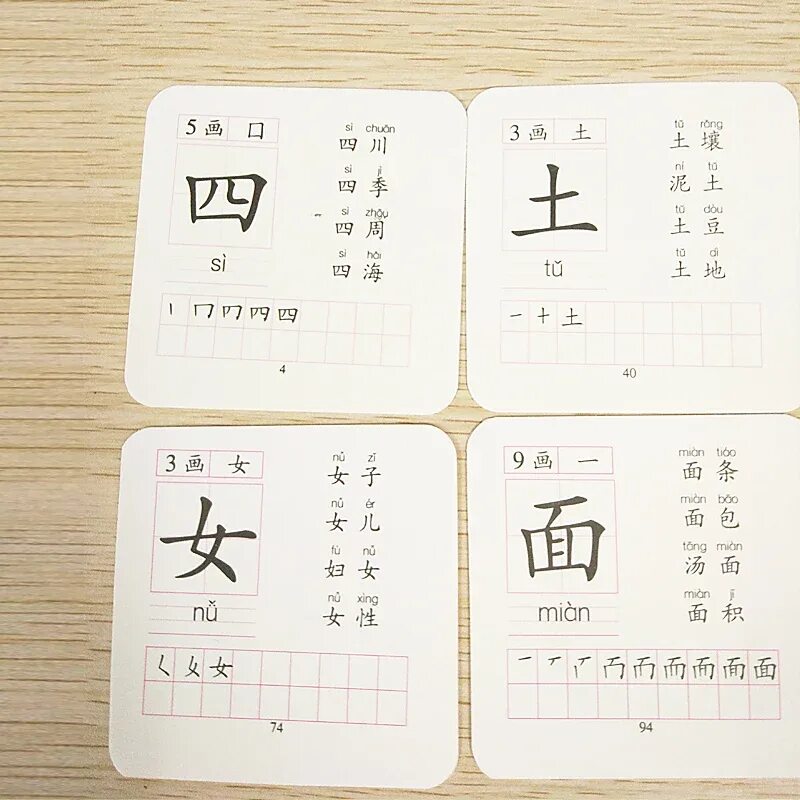 5画 口
四
sì
sì chuān
四川
sì jì
四季
sì zhōu
四周
sì hǎi
四海
丨 冂 𠘨 四 四
4
3画 土
土
tǔ
tǔ rǎng
土壤
ní tǔ
泥土
tǔ dòu
土豆
tǔ dì
土地
一 十 土
40
3画 女
女
nǚ
nǚ zǐ
女子
nǚ ér
女儿
fù nǚ
妇女
nǚ xìng
女性
女
74
9画 一
面
miàn
miàn tiáo
面条
miàn bāo
面包
tāng miàn
汤面
miàn jī
面积
一 面
94